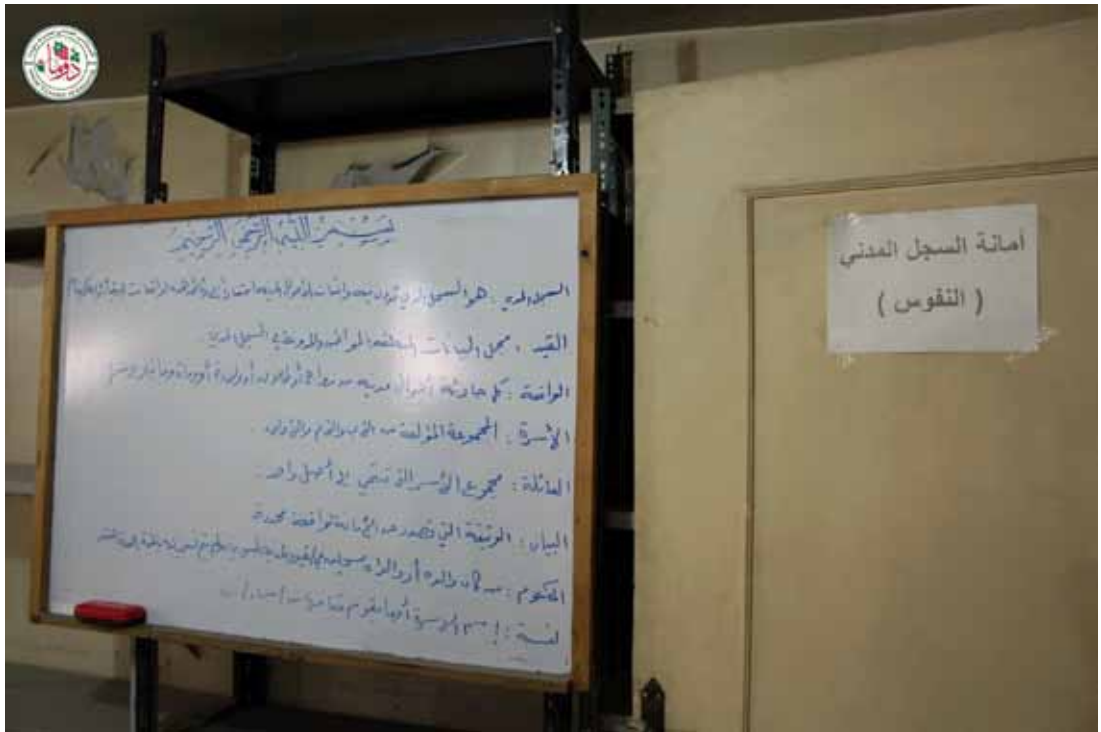 دوما
بسم الله الرحمن الرحيم
السجل المدني : هو السجل الذي تدون فيه واقعات الأحوال المدنية
القيد : مجمل البيانات المتعلقة بالمواطن والمدونة في السجل المدني
الواقعة : كل حادثة أحوال مدنية من زواج أو طلاق أو ولادة أو وفاة وما
الأسرة : المجموعة المؤلفة من الأب والأم والأولاد .
العائلة : مجموع الأسر التي تنتمي إلى أصل واحد .
البيان : الوثيقة التي تصدر عن الأمانة لواقعة محددة
المكتوم : من كان والده أو والداه مسجلين في القيود
النسبة : اسم الأسرة أو ما يقوم مقامها
أمانة السجل المدني
( النفوس )